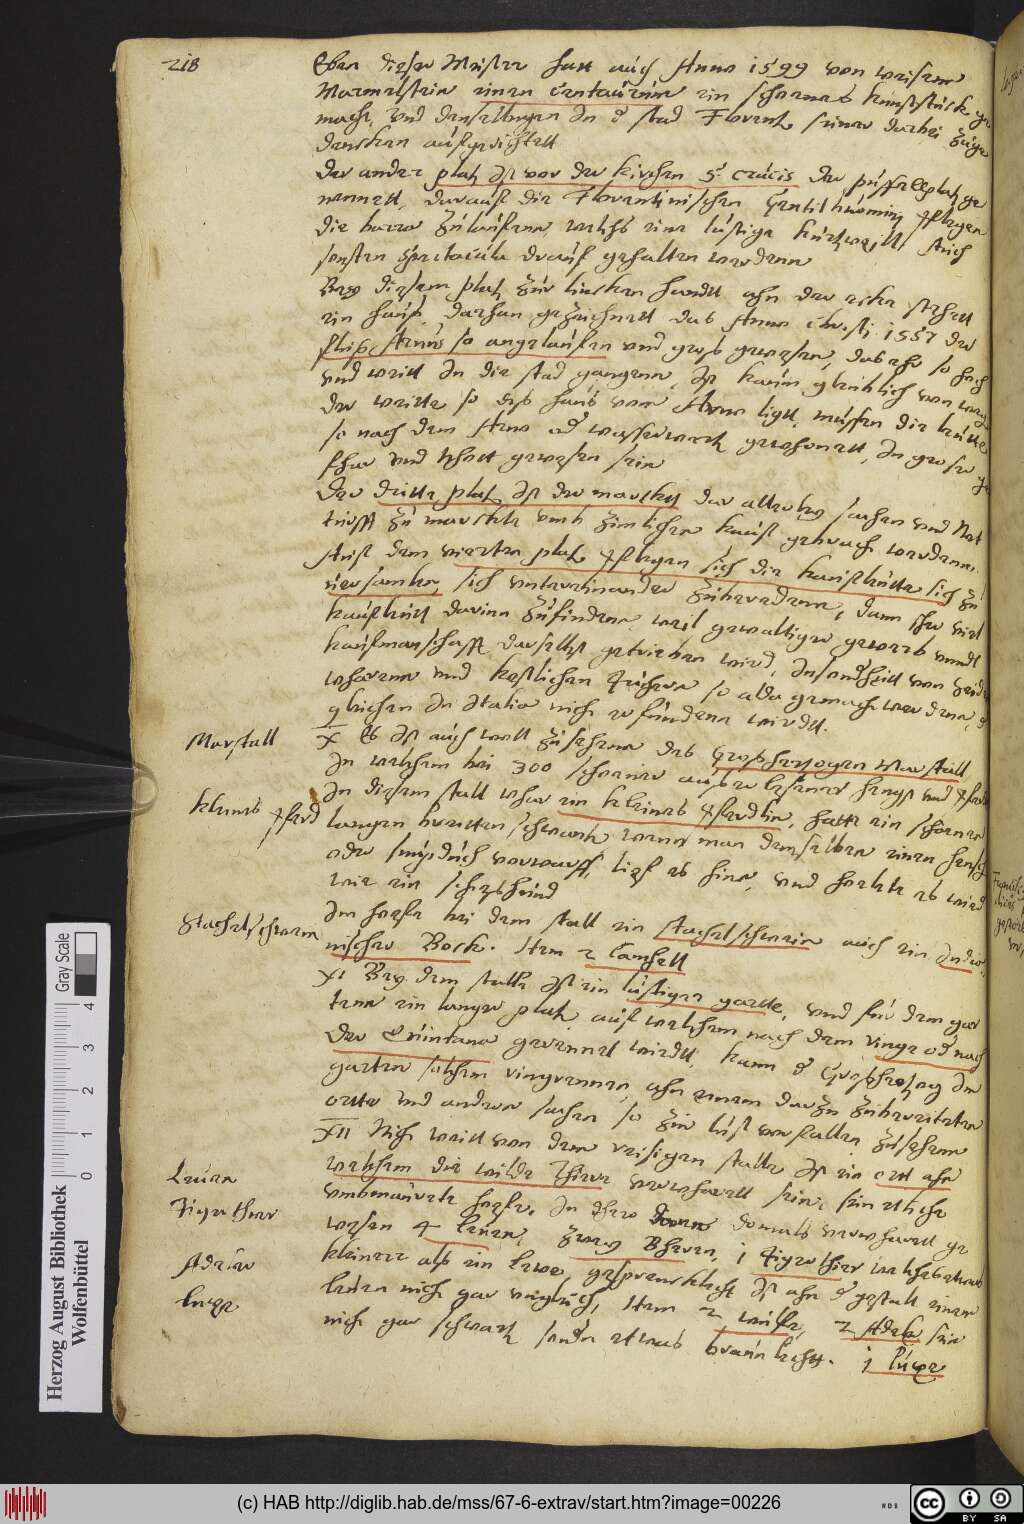 218
Eben dieser Meister hatt auch Anno 1599 von weisem
Marmelstein einen Centaurum ein schoenes kunststuck ge
macht, und denselbigen in d stad Florentz seiner darbei zuge
dencken aufgerichtett
Der ander platz ist vor der kirchen S. Crucis der
nennett, darauf die Florentinischen Gentilhuomini pflegen
die barra zulauffen welchs eine lustige kurtzweil, Auch
sonsten spectacula drauf gehalten werdenn
Bey diesem platz zur lincken handt ahn der ecke stehett
ein hauß, darahn gezeichnett das Anno Christi 1557 der
fluß Arnus so angelauffen und groß gewesen, das ehr so hoch
und weitt in die stad gangenn, ist kaum glaublich von wegen
der weitte so diß haus vom Arno ligt, müssen die leutte
so nach dem Arno od wasserwerck gewohnett, in groser ge
fhar und nhott gewesen sein
Der dritte platz ist der marckt dar allerley sachen und Not
turfft zu marckte umb zimlichen kauf gebracht werdenn.
Auf dem vierten platz pflegen sich die kaufleutte sich zu
versamlen, sich untereinander zubereden, dann ihr viel
kaufleutt darinn zufinden, weil gewaltiger gewerb unndt
kaufmanschafft daselbst getrieben wird, insonderheitt von seiden
wharenn und kostlichen tüchern so alda gemacht werdenn, d
gleichen in Italia nicht erfunden wirdt.
Marstall
X Es ist auch woll zusehenn des Großhertzogen Marstall
In welchem bei 300 schoener außerlesener hengst und pferd
kleines pferd
In diesem stall whar ein kleines pferdlin, hatte ein schoenen
langen breitten schwantz wenn man demselben einen handsch
oder schnupduch vorwarff, lief es hinn, und holete es wied
wie ein schießhund
Stachelschwein
Im hofe bei dem stall ein stachelschwein auch ein Indie
nischer Bock. Item 2 Camell
XI Bey dem stalle ist ein lustiger garte, und für dem gar
tenn ein langer platz auf welchem nach dem ringe od nach
der Quintana gerennet wirdt, kann d Großhertzog im
garten solchem ringrennen, ahn einem darzu zubereiteten
ortte und anderen sachen so zur lust vorfallen zusehenn
XII Nicht weitt von dem reisigen stalle ist ein ort ahn
welchem die wilde Thiere verwharett sein, sein etliche
umbmaurete hofe, in ihre domals verwharett ge
Leuen
wesen 4 Leuen, zwey Bheren, 1 Tigerthier welches etwas
Tigerthier
kleiner alß ein Lewe, gesprencklecht ist ahn d gestalt einem
Leuen nicht gar ungleich, Item 2 wolfe, 2 Adeler sein
Adeler
nicht gar schwartz sonder etwas braunlecht. 1 Luxe
Luxe
Gray Scale
4
3
2
1
0
Herzog August Bibliothek
Wolfenbüttel
(c) HAB http://diglib.hab.de/mss/67-6-extrav/start.htm?image=00226
WDB
cc BY SA